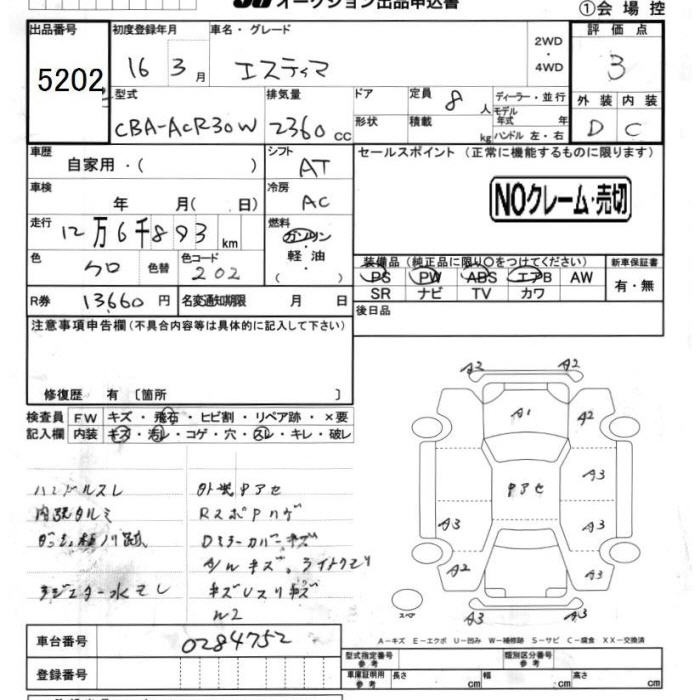 オークション出品申込書
①会場控
出品番号 初度登録年月 車名・グレード 評価点
5202 16 3月 エスティマ 2WD・4WD 3
型式 排気量 ドア 定員 8人 ディーラー・並行 外装 内装
CBA-ACR30W 2360cc 形状 積載 kg モデル年式 年 ハンドル 左・右 D C
車歴 自家用・( ) シフト AT セールスポイント (正常に機能するものに限ります)
車検 年 月( 日) 冷房 AC NOクレーム・売切
走行 12万6千893km 燃料 ガソリン・軽油・( )
色 クロ 色替 色コード 202 装備品(純正品に限り〇をつけてください) 新車保証書
PS PW ABS エアB AW 有・無
SR ナビ TV カワ
R券 13,660円 名変通知期限 月 日 後日品
注意事項申告欄(不具合内容等は具体的に記入して下さい)
修復歴 有〔箇所 〕
検査員 FW キズ・飛石・ヒビ割・リペア跡・×要
記入欄 内装 キズ・汚レ・コゲ・穴・スレ・キレ・破レ
ハンドルスレ 外装中アセ
内張タルミ RスポPハゲ
Dミラーカバーキズ
ラジエター水モレ
W2
A2 A2
A1 A2
A3
中アセ
A3 A3
A2 A3
A3
スペア
A-キズ E-エクボ U-凹み W-補修跡 S-サビ C-腐食 XX-交換済
車台番号 0284752
登録番号
型式指定番号 参考 類別区分番号 参考
車庫証明用 参考 長さ cm 幅 cm 高さ cm